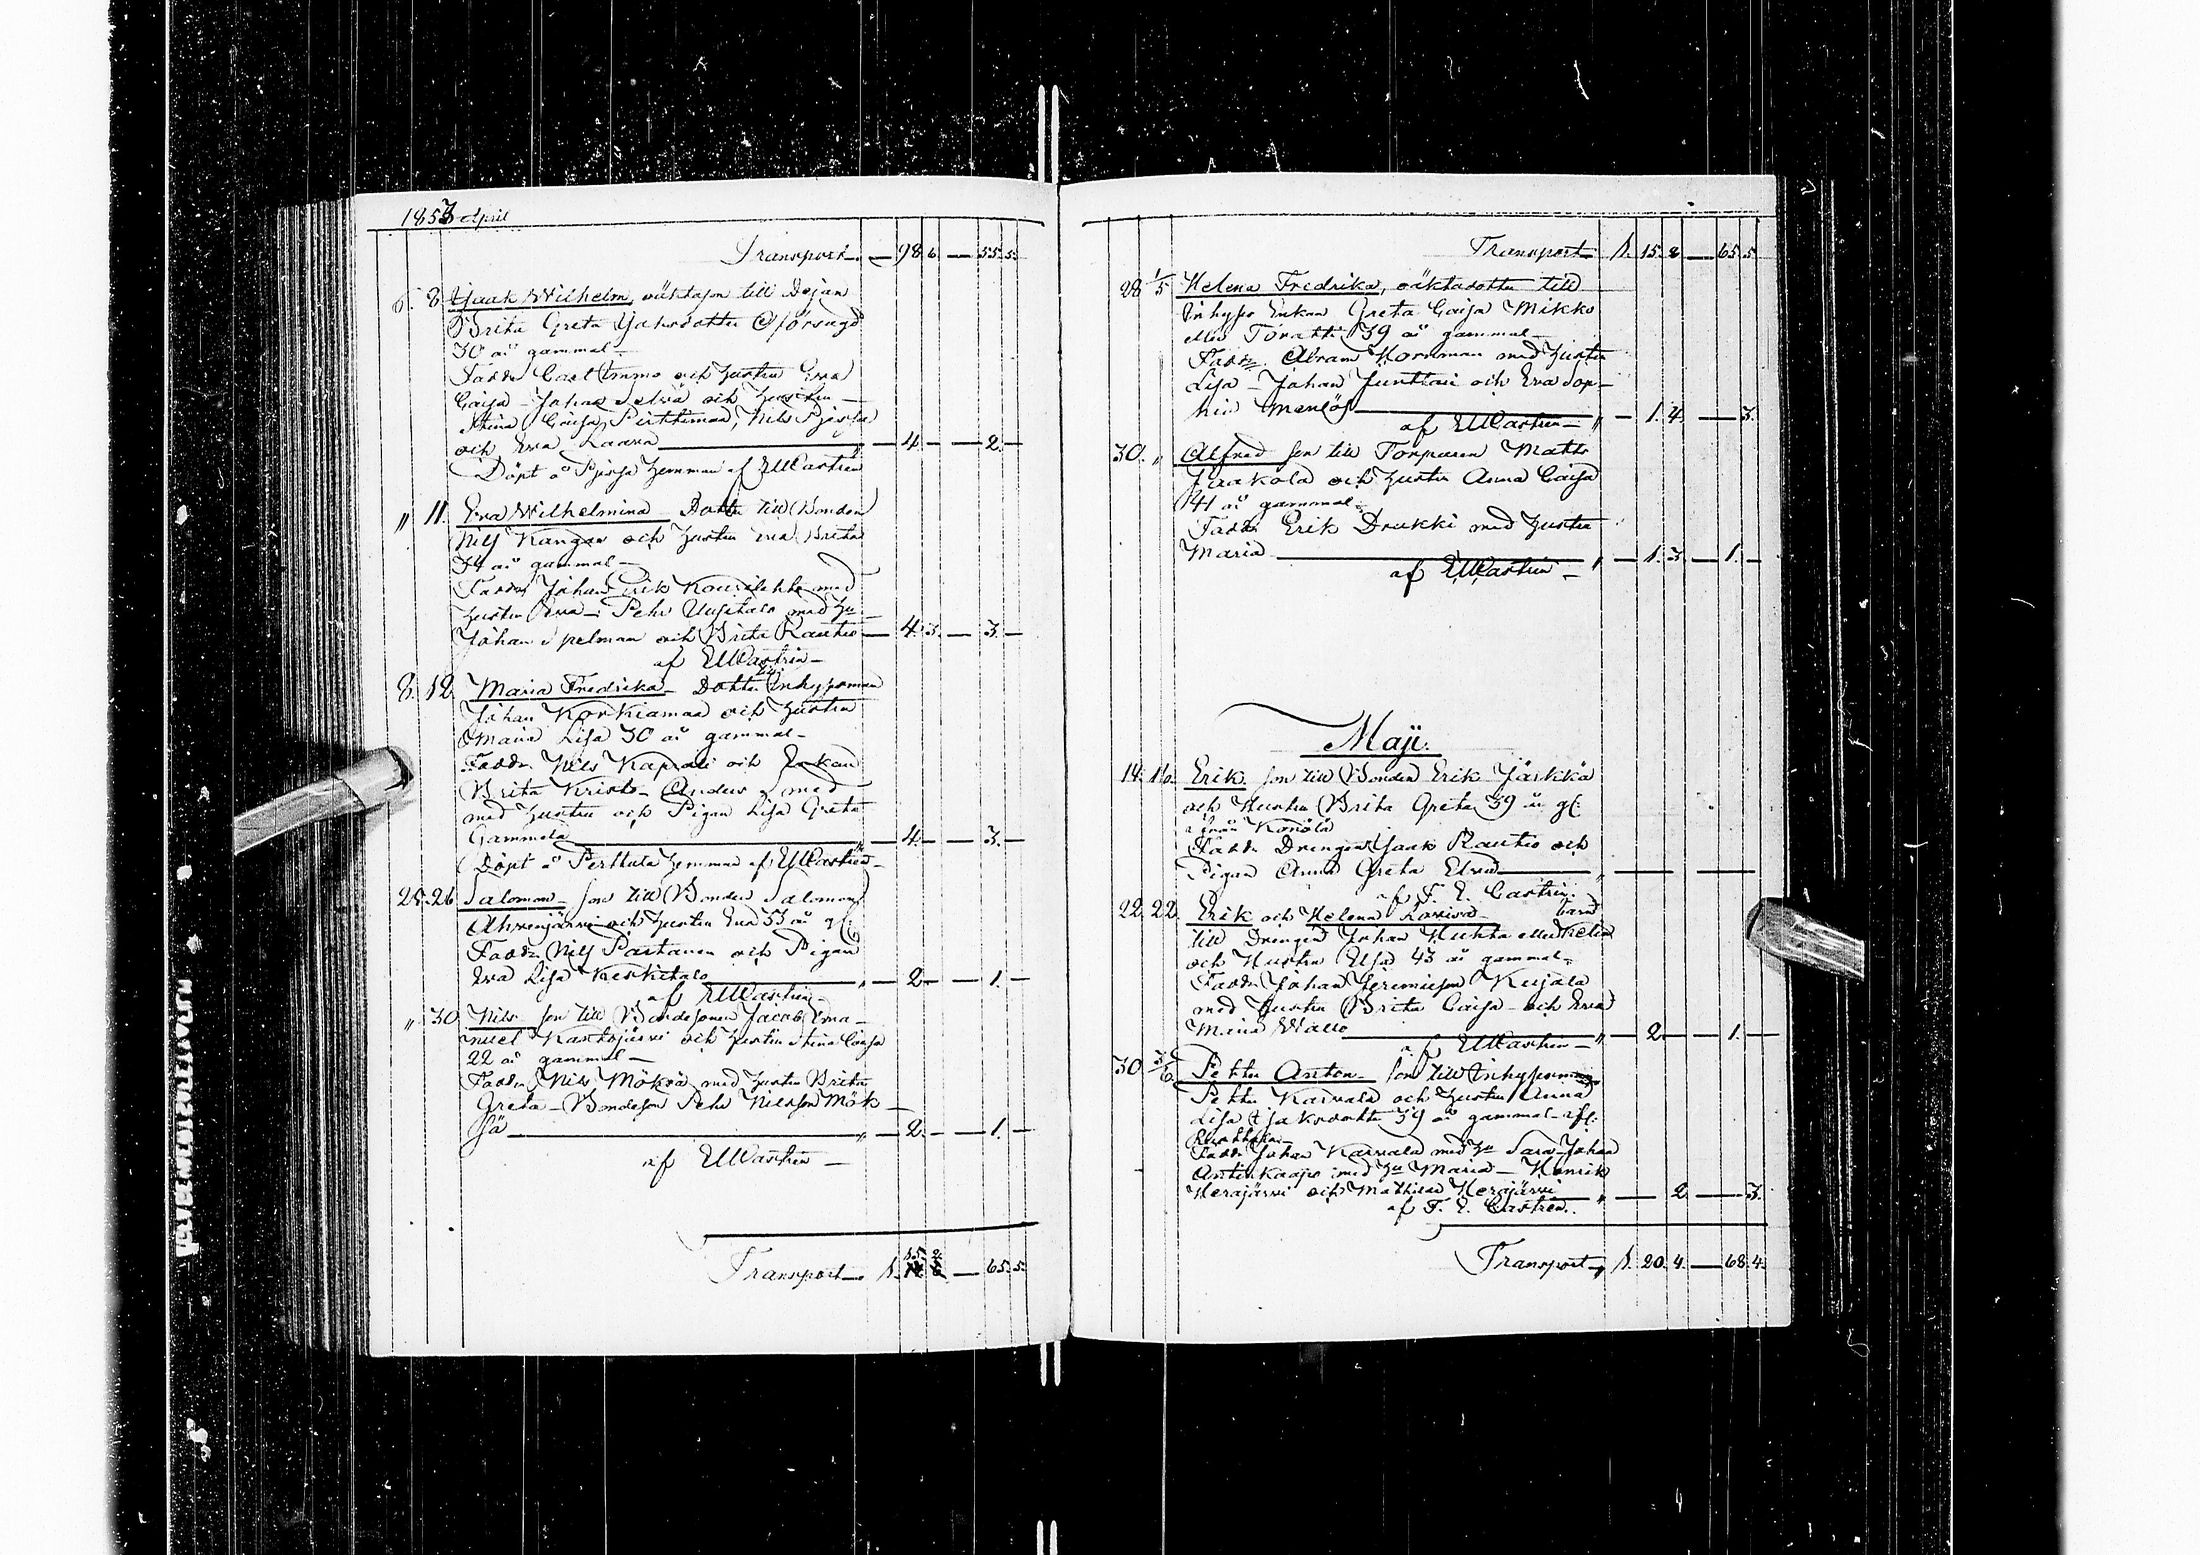 1853 April
Transport — 98. 6. — 55. 5.
6. 8. Isaak Wilhelm, oäktason till Dejan
Brita Greta
30 år gammal —
Fadd. Carl Emmo och hustru Eva
Caisa — Johan och hustru
Stina Caisa Pirttimaa, Nils
och Eva Laara — 4. — 2. —
Döpt å hemman af EWCastrén
" 11. Eva Wilhelmina — Dotter till Bonden
Nils Kangas och hustru Eva Brita
34 år gammal —
Fadd. Johan Erik med
hustru Eva — Pehr Uusitalo med hu
Johan Spelman och Brita Rautio — 4. 3. — 3. —
af EWCastrén —
8. 12. Maria Fredrika — Dotter till Inhysesman
Johan Korkiamaa och hustru
Maria Lisa 30 år gammal —
Fadd. Nils och Enkan
Brita — Anders med
med hustru och Pigan Lisa Greta
Gammela — 4. — 3. —
Döpt å Perttula hemman af EWCastrén —
25. 26. Salomon — son till Bonden Salomon
Ahvenjärvi och hustru Eva 33 år gl:
Fadd. Nils Partanen och Pigan
Eva Lisa Keskitalo — " — 2. — 1. —
af EWCastrén —
" 30. Nils son till Bondesonen Jacob Ema-
nuel Kaartojärvi och hustru Stina Caisa
22 år gammal —
Fadd. Nils Möksä med hustru Brita
Greta — Bondeson Pehr Nilsson Mök-
sä — " — 2. — 1. —
af EWCastrén —
Transport — 1. 15. 2. — 65. 5.
Transport — 1. 15. 2. — 65. 5.
28. 1/5 Helena Fredrika, oäktadotter till
Inhyses Enkan Greta Caisa Mikko
eller 39 år gammal —
Fadd. Abram Kornman med hustru
Lisa — Johan Junttari och Eva Sop-
hia — " — 1. 4. — 3.
af EWCastrén —
30. " Alfred son till Torparen Matts
Jaakola och hustru Anna Caisa
41 år gammal.
Fadd. Erik Drukki med hustru
Maria — " — 1. 3. — 1. —
af EWCastrén —
Maji.
14. 16. Erik son till Bonden Erik Jäskkä
och Hustru Brita Greta 39 år gl:
ifrån Korölä
Fadd. Drengen Isaak Rautio och
Pigan Anna Greta — " — —
af F. E. Castrén.
22. 22. Erik och Helena Lovisa — barn
till Drengen Johan Huhta eller
och Hustru Elsa 43 år gammal —
Fadd. Johan Jeremiesson Kujala
med Hustru Brita Caisa — och Eva
Maria — " — 2. — 1. —
af EWCastrén —
30. 3/6. Petter Anton — son till Inhysesman
Petter Karvala och hustru Anna
Lisa Isaksdotter 39 år gammal
Fadd. Johan Karvala med hu Sara — Johan
Antinkaapo med hu Maria — Henrik
Herajärvi och Mathilda Herajärvi — " — 2. — 3.
af F. E. Castrén.
Transport — 1. 20. 4. — 68. 4.